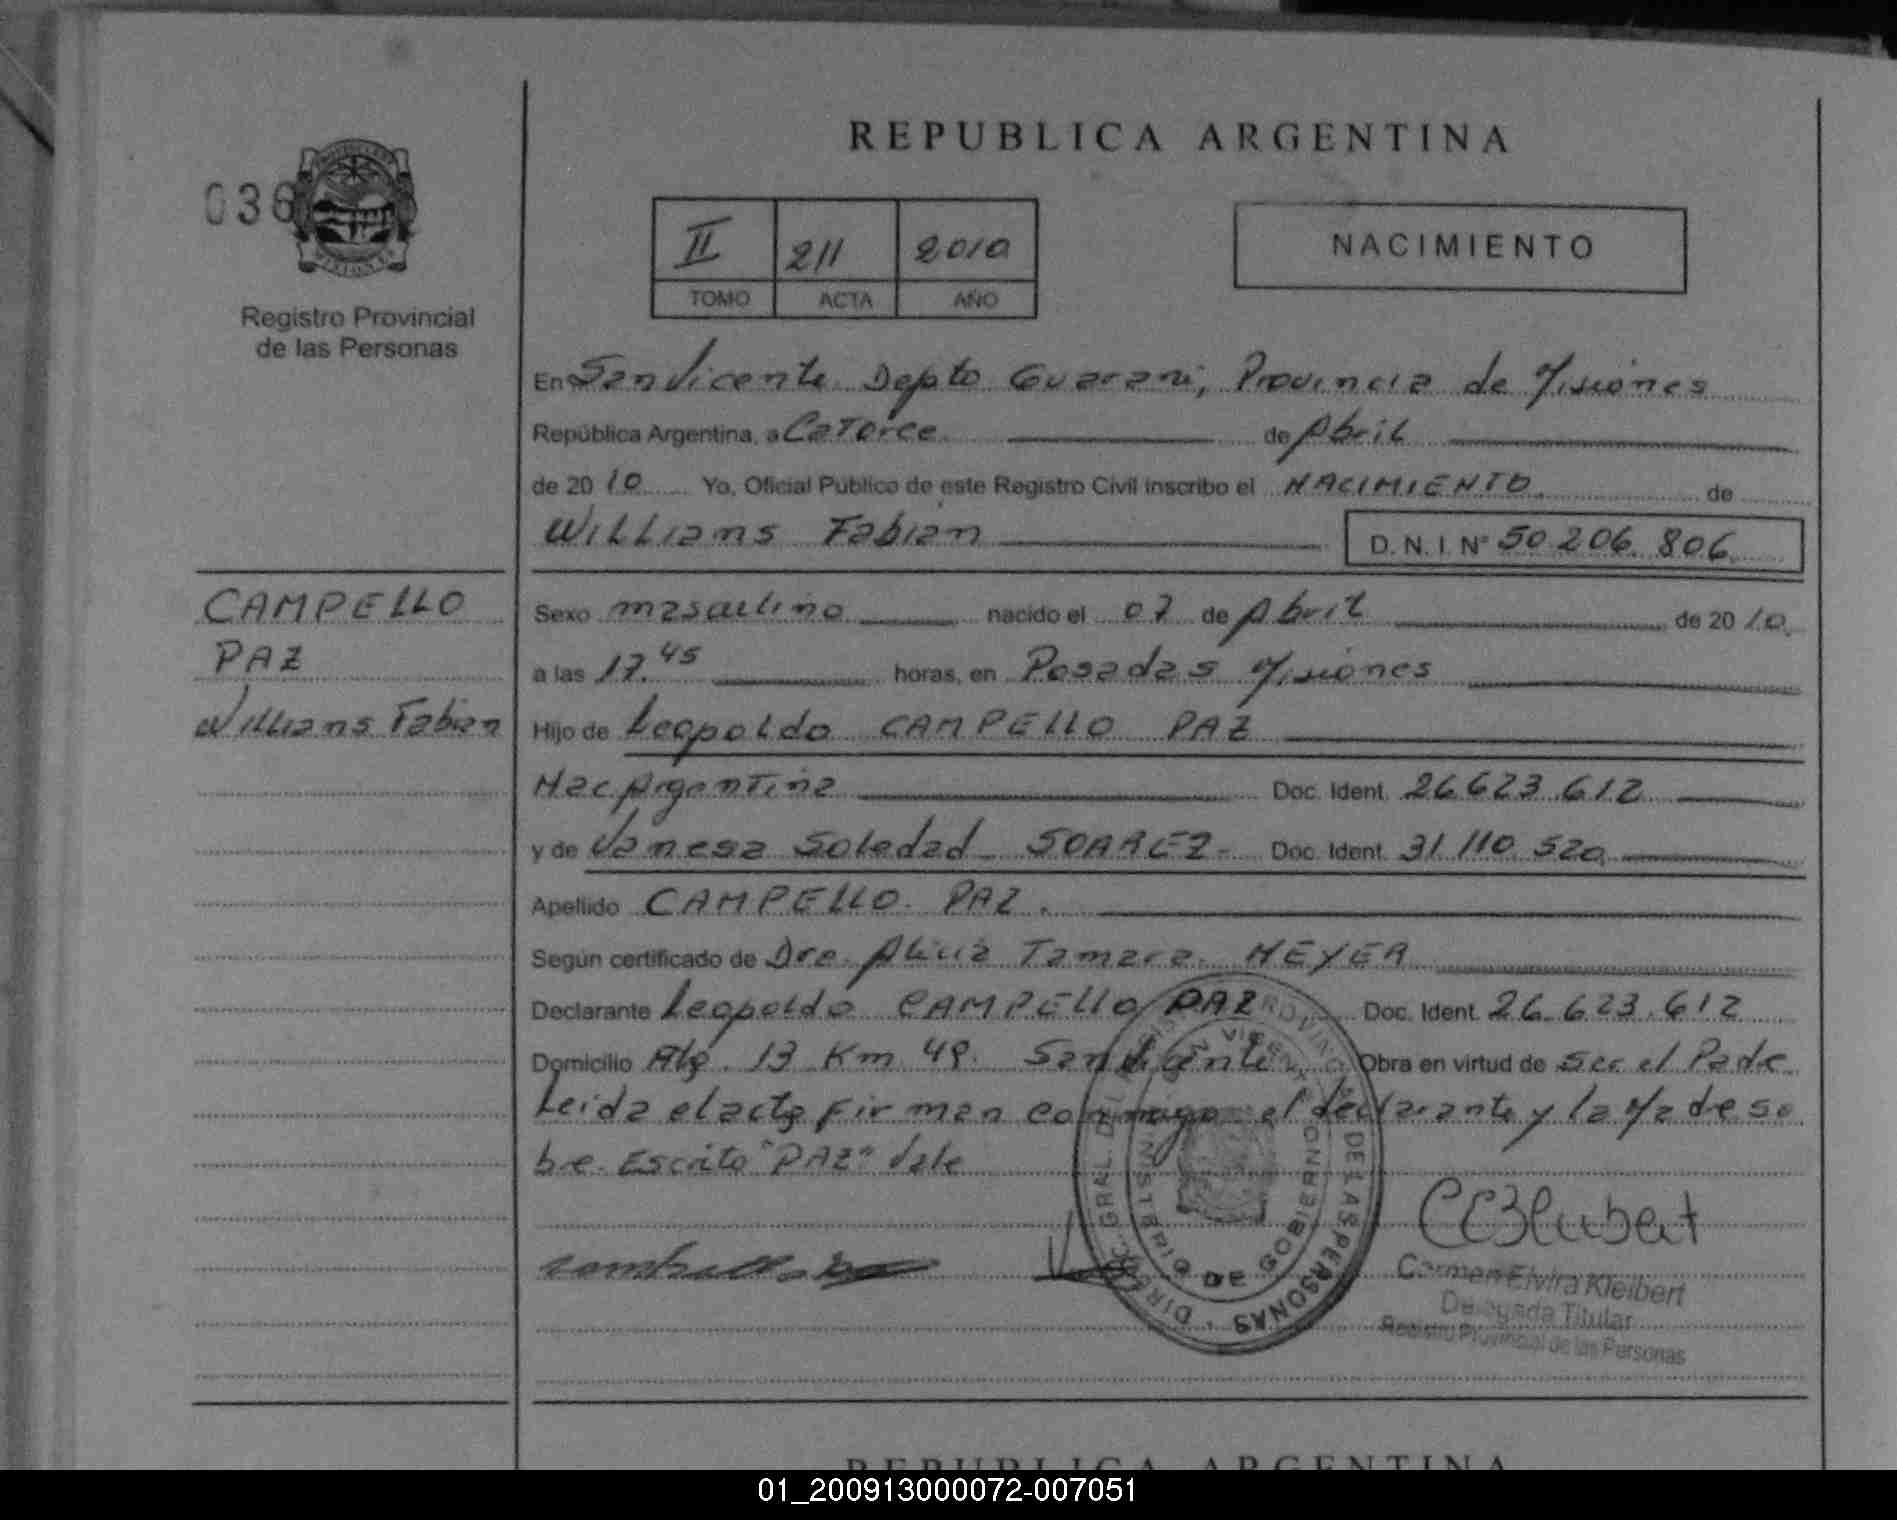 REPUBLICA ARGENTINA
036
Registro Provincial
de las Personas
II 211 2010
TOMO ACTA AÑO
NACIMIENTO
En San Vicente Depto Guarani, Provincia de Misiones
República Argentina, a Catorce de Abril
de 2010 Yo, Oficial Público de este Registro Civil inscribo el NACIMIENTO de
Willians Fabian D.N.I. Nº 50.206.806
CAMPELLO
PAZ
Willians Fabian
Sexo masculino nacido el 07 de Abril de 2010
a las 17.45 horas, en Posadas Misiones
Hijo de Leopoldo CAMPELLO PAZ
Nac Argentina Doc. Ident. 26.623.612
y de Vanesa Soledad SOAREZ Doc. Ident. 31.110.520
Apellido CAMPELLO PAZ.
Según certificado de Dra. Alicia Tamara MEYER
Declarante Leopoldo CAMPELLO PAZ Doc. Ident. 26.623.612
Domicilio Alg. 13 Km 49. San Vicente Obra en virtud de ser el Padre
Leida el acta firman conmigo el declarante y la Madre so
bre Escrito "PAZ" Vale
DIREC. GRAL. DEL REGISTRO PROVINCIAL DE LAS PERSONAS
SAN VICENTE
MINISTERIO DE GOBIERNO
Carmen Elvira Kleibert
Delegada Titular
Registro Provincial de las Personas
REPUBLICA ARGENTINA
01_200913000072-007051